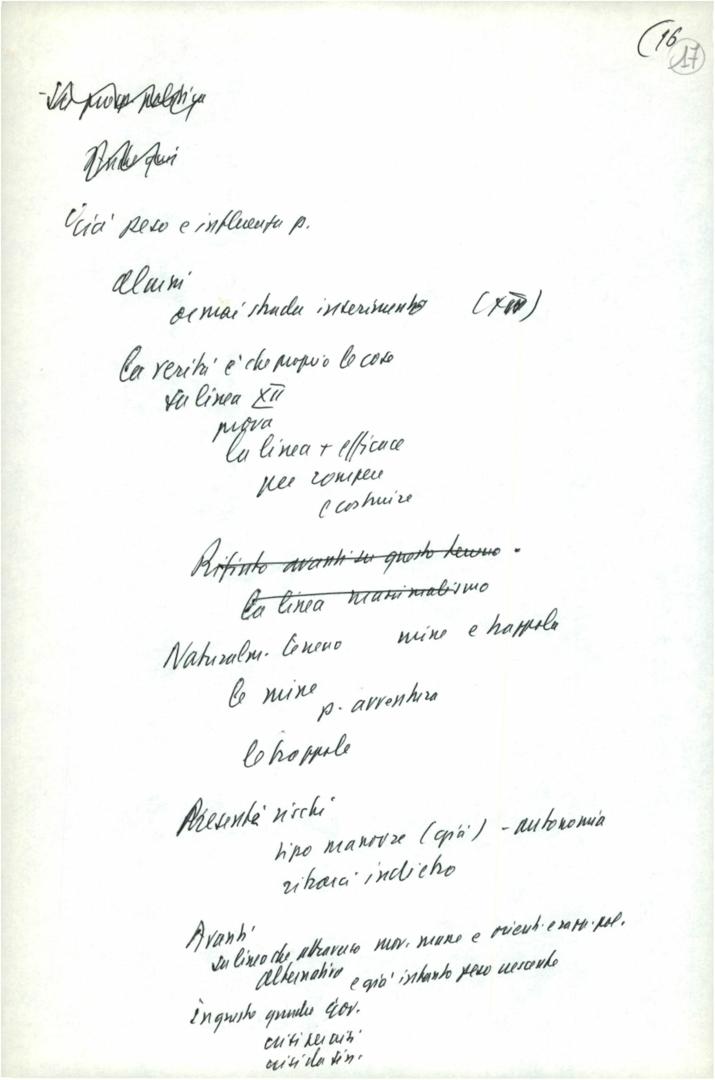 (16
17
già peso e influenza p.
alcuni
ormai strada inserimento (XII)
la verità è che proprio le cose
su linea XII
prova
la linea + efficace
per rompere
e costruire
Rifiuto avanti su questo terreno.
la linea massimalismo
Naturalm. terreno mine e trappole
le mine
p. avventura
le trappole
Presenta rischi
tipo manovre (già) - autonomia
ritorci indietro
Avanti
su linea che attraverso mov. masse e orient. e rapp. pol.
alternativa e già intanto peso crescente
in questo quadro gov.
crisi per crisi
crisi da sin.